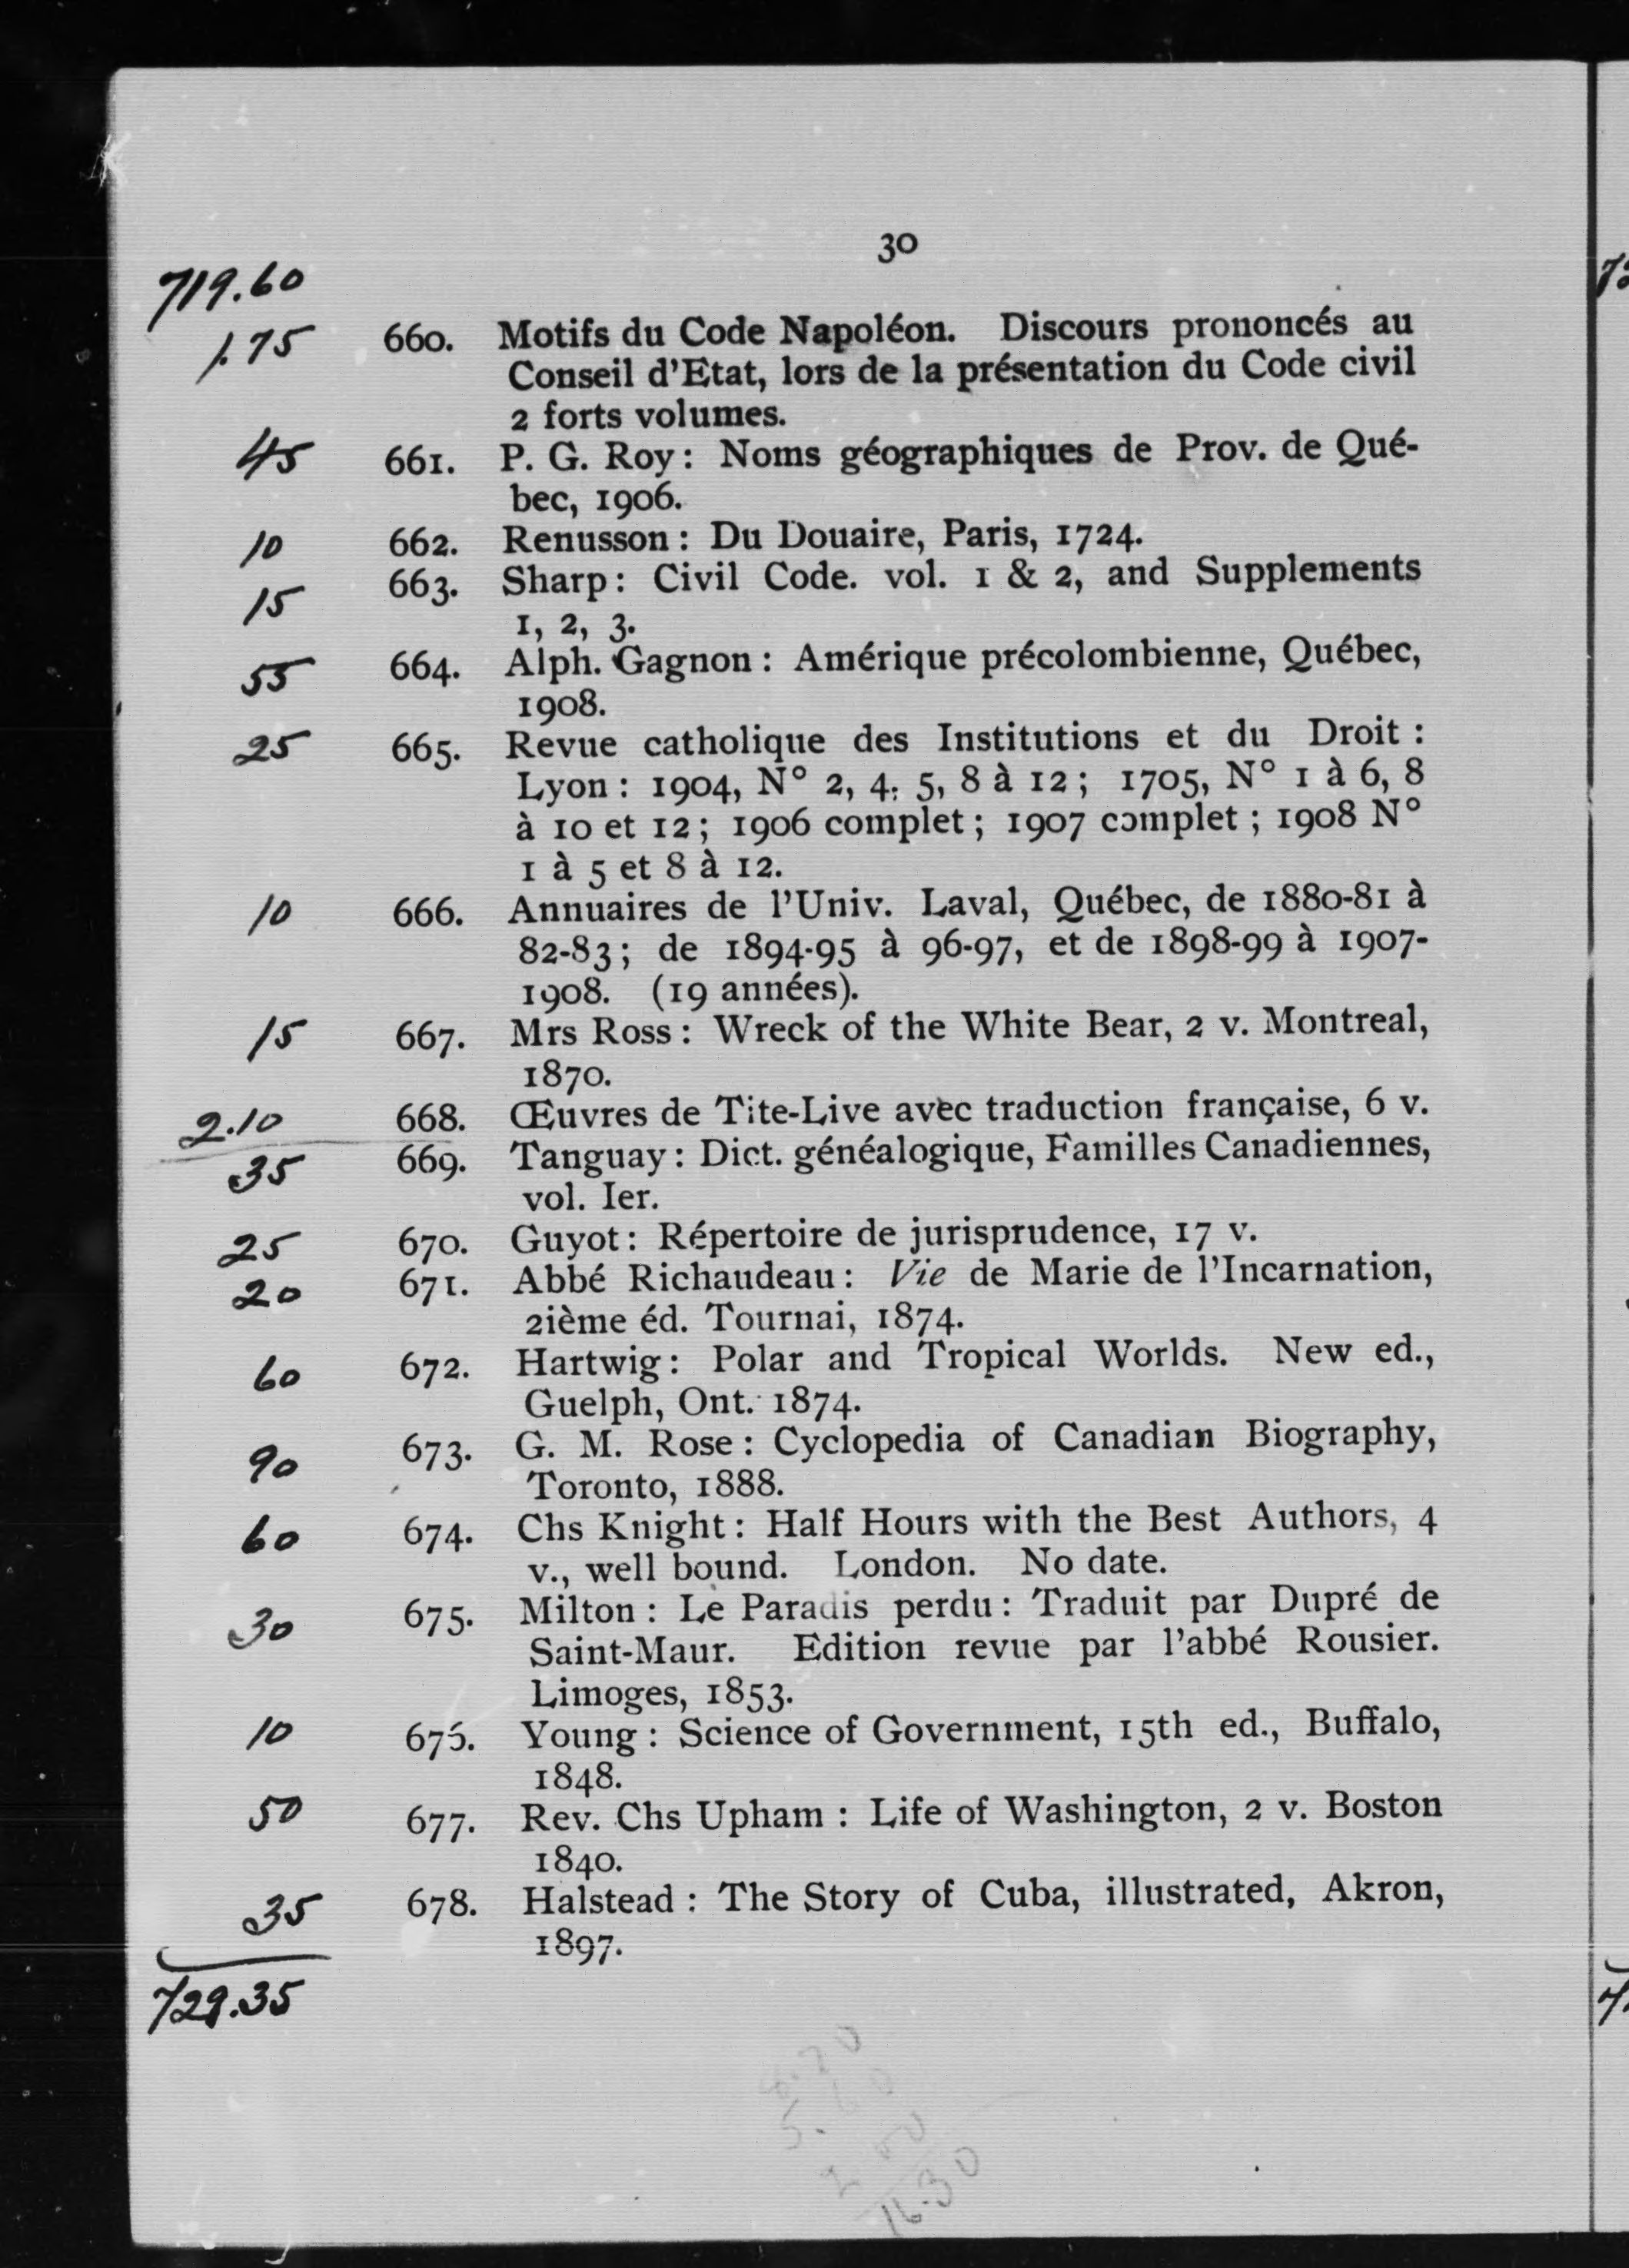 30
719.60
1.75 660. Motifs du Code Napoléon. Discours prononcés au
Conseil d'Etat, lors de la présentation du Code civil
2 forts volumes.
45 661. P. G. Roy : Noms géographiques de Prov. de Qué-
bec, 1906.
10 662. Renusson : Du Douaire, Paris, 1724.
15 663. Sharp : Civil Code. vol. 1 & 2, and Supplements
1, 2, 3.
55 664. Alph. Gagnon : Amérique précolombienne, Québec,
1908.
25 665. Revue catholique des Institutions et du Droit :
Lyon : 1904, N° 2, 4. 5, 8 à 12 ; 1705, N° 1 à 6, 8
à 10 et 12 ; 1906 complet ; 1907 complet ; 1908 N°
1 à 5 et 8 à 12.
10 666. Annuaires de l'Univ. Laval, Québec, de 1880-81 à
82-83 ; de 1894-95 à 96-97, et de 1898-99 à 1907-
1908. (19 années).
15 667. Mrs Ross : Wreck of the White Bear, 2 v. Montreal,
1870.
2.10 668. Œuvres de Tite-Live avec traduction française, 6 v.
35 669. Tanguay : Dict. généalogique, Familles Canadiennes,
vol. Ier.
25 670. Guyot : Répertoire de jurisprudence, 17 v.
20 671. Abbé Richaudeau : Vie de Marie de l'Incarnation,
2ième éd. Tournai, 1874.
60 672. Hartwig : Polar and Tropical Worlds. New ed.,
Guelph, Ont. 1874.
90 673. G. M. Rose : Cyclopedia of Canadian Biography,
Toronto, 1888.
60 674. Chs Knight : Half Hours with the Best Authors, 4
v., well bound. London. No date.
30 675. Milton : Le Paradis perdu : Traduit par Dupré de
Saint-Maur. Edition revue par l'abbé Rousier.
Limoges, 1853.
10 676. Young : Science of Government, 15th ed., Buffalo,
1848.
50 677. Rev. Chs Upham : Life of Washington, 2 v. Boston
1840.
35 678. Halstead : The Story of Cuba, illustrated, Akron,
1897.
729.35
16.30